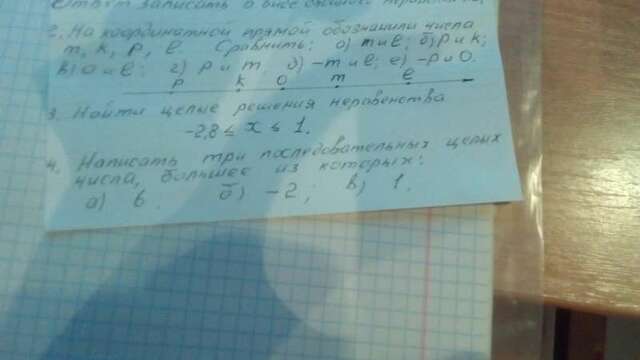 Ответ записать в виде
2. На координатной прямой обозначили числа
m, k, p, e. Сравнить: а) m и e; б) p и k;
в) 0 и e; г) p и m; д) -m и e; е) -p и 0.
p k 0 m e
3. Найти целые решения неравенства
-2,8 ≤ x ≤ 1.
4. Написать три последовательных целых
числа, большее из которых:
а) 6 б) -2; в) 1.